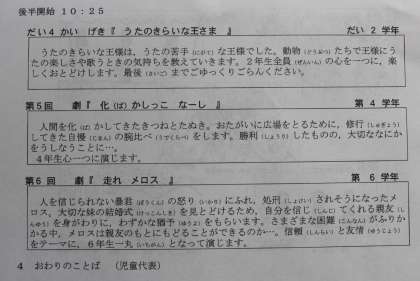 後半開始 10:25
だい4かい げき『 うたのきらいな王さま 』 だい 2 学年
うたのきらいな王様は、うたの苦手(にがて)な王様でした。動物(どうぶつ)たちで王様にうたの楽しさや歌うときの気持ちを教えていきます。2年生全員(ぜんいん)の心を一つに、楽しくおとどけします。最後(さいご)までごゆっくりごらんください。
第5回 劇『 化(ば)かしっこ なーし 』 第 4 学年
人間を化(ば)かしてきたきつねとたぬき。おたがいに広場をとるために、修行(しゅぎょう)してきた自慢(じまん)の腕比べ(うでくらべ)をします。勝利(しょうり)したものの、大切ななにかをうしなうことに…。
4年生心一つに演じます。
第6回 劇『 走れ メロス 』 第 6学年
人を信じられない暴君(ぼうくん)の怒り(いかり)にふれ、処刑(しょけい)されそうになったメロス。大切な妹の結婚式(けっこんしき)を見とどけるため、自分を信じ(しんじ)てくれる親友(しんゆう)を身がわりに、わずかな猶予(ゆうよ)をもらいます。さまざまな困難(こんなん)がふりかかる中、メロスは親友のもとにもどることができるのか…。信頼(しんらい)と友情(ゆうじょう)をテーマに、6年生一丸(いちがん)となって演じます。
4 おわりのことば (児童代表)